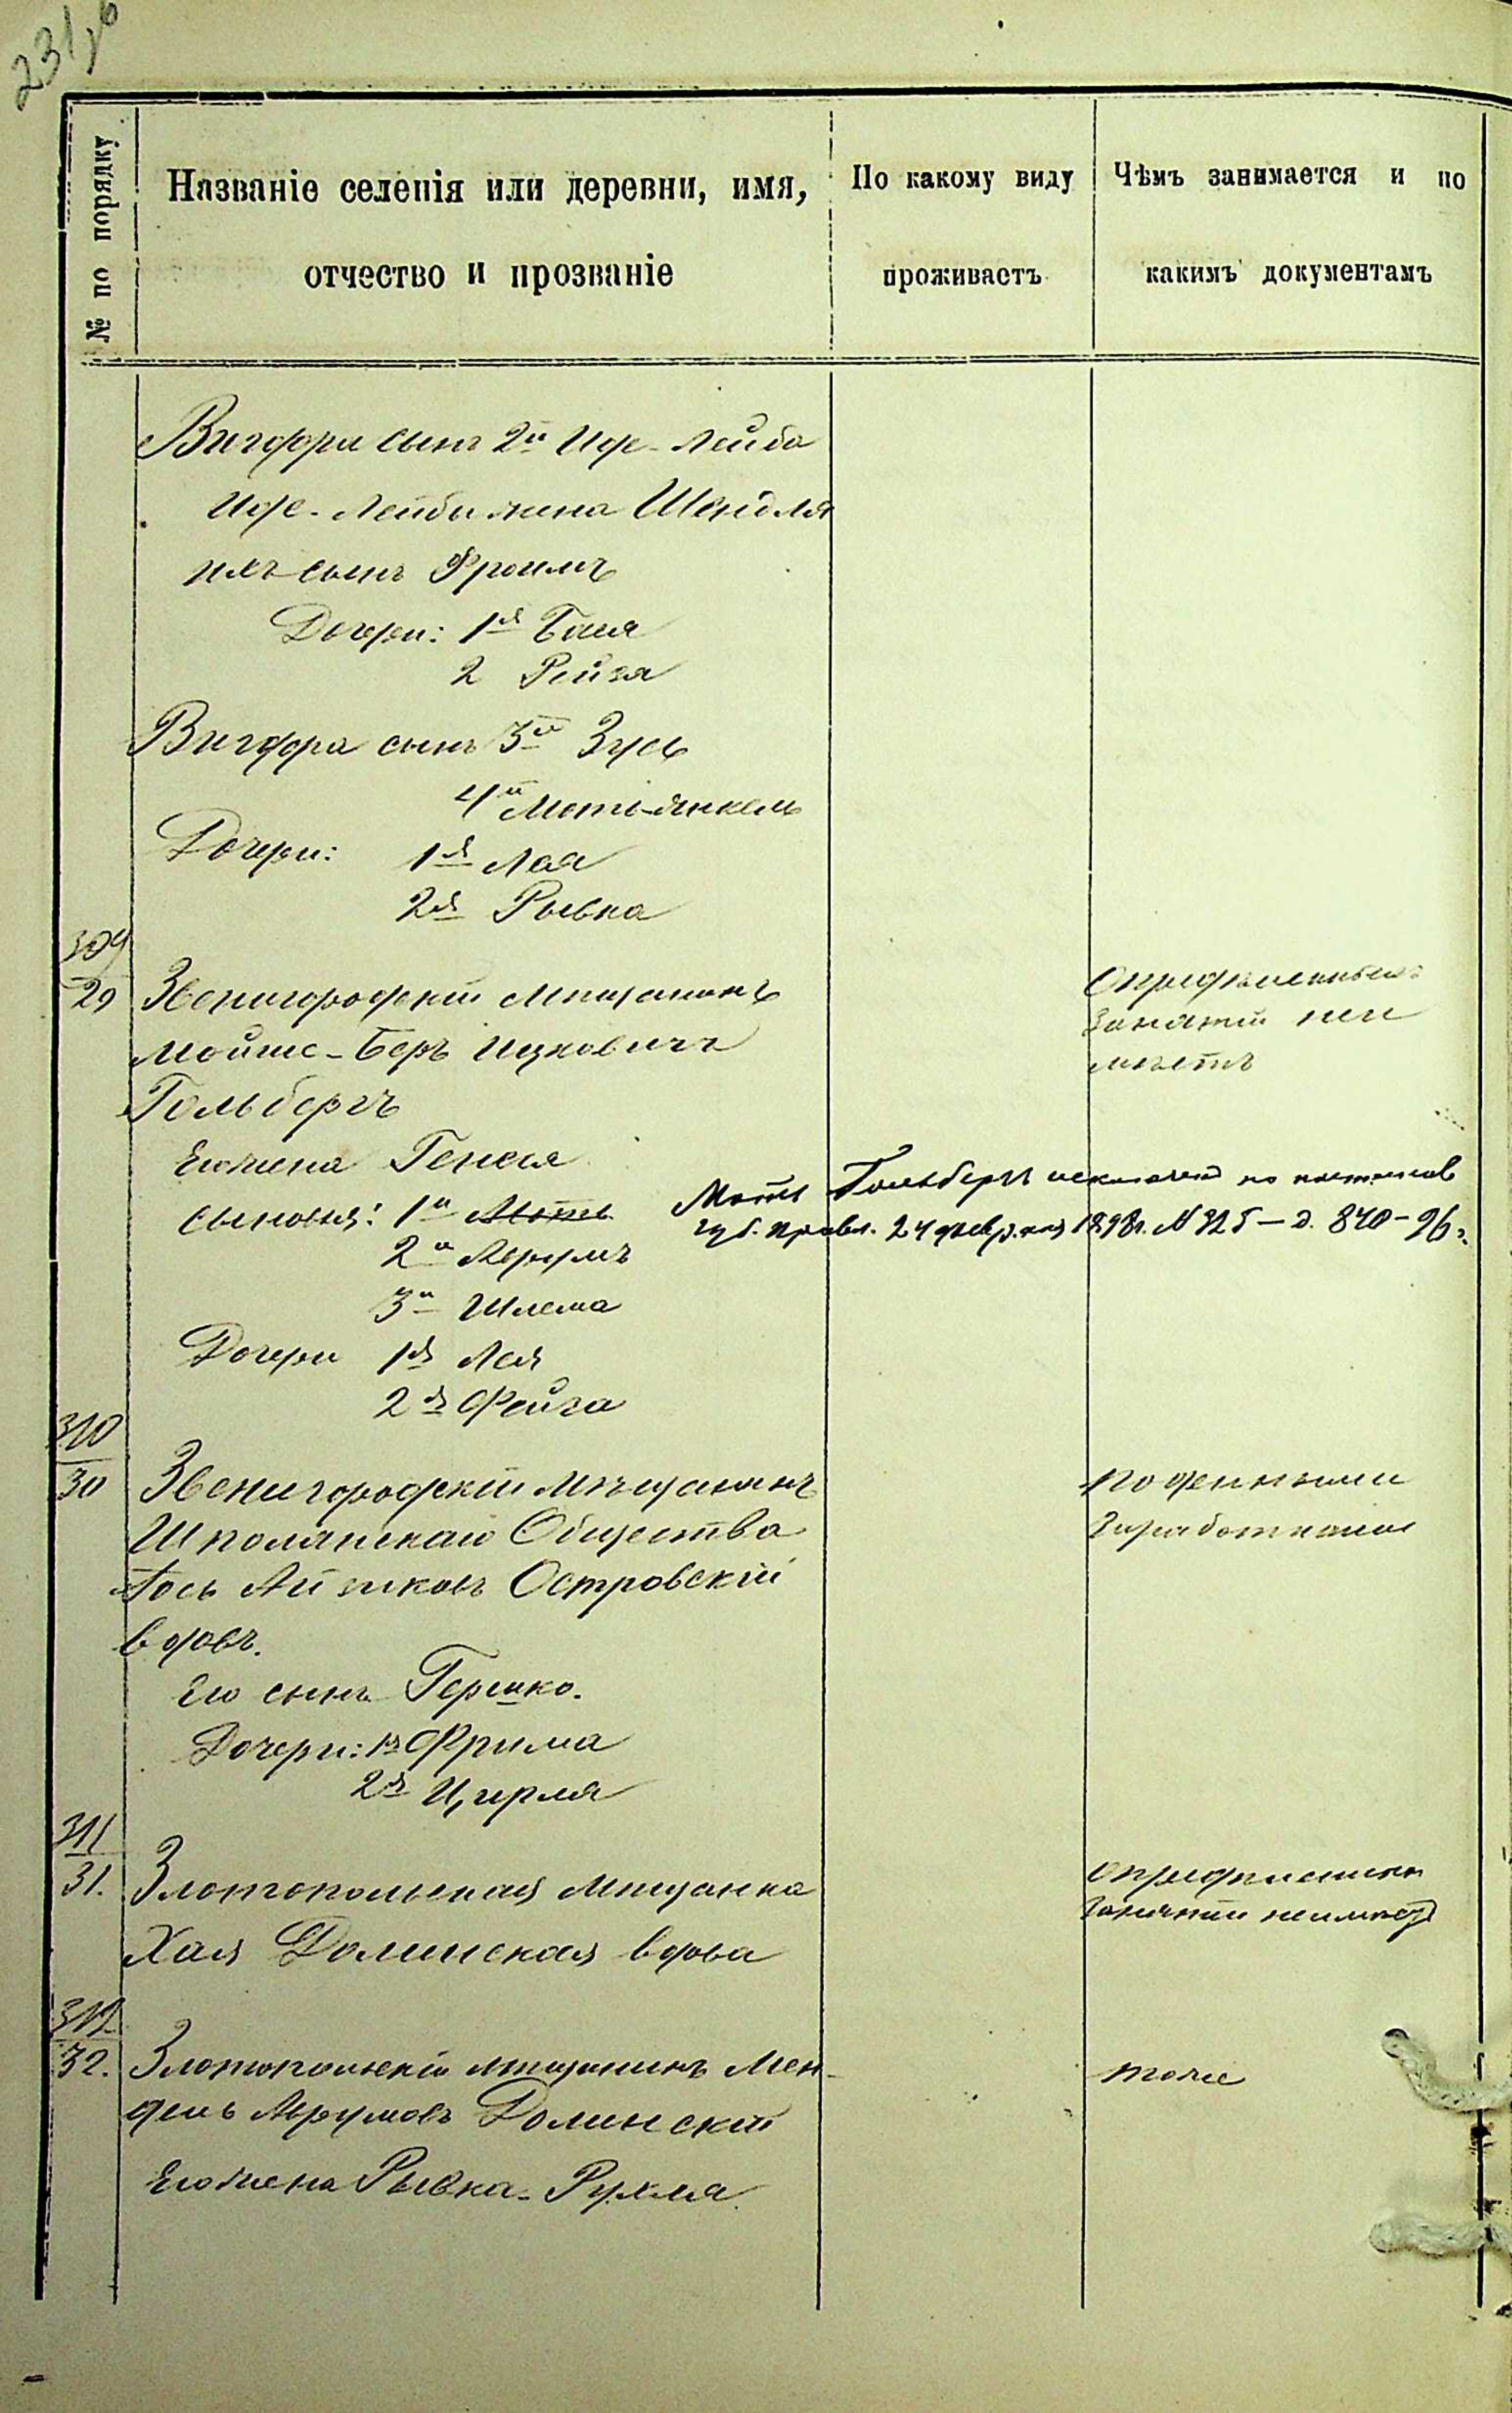 231 об
№ по порядку
Названіе селенія или деревни, имя,
отчество и прозваніе
По какому виду
проживаетъ
Чѣмъ занимается и по
какимъ документамъ
Вигдора сынъ 2й Иде-Лейба
Иде-Лейбы жена Шейдля
ихъ сынъ Фроимъ
Дочери: 1я Бася
2 Рейза
Вигдора сынъ 3й Зусь
4й Моть-Янкель
Дочери: 1я Лея
2я Рывка
309
29 Звенигородскій мѣщанинъ
Мойше-Беръ Ицковичъ
Гольбергъ
Его жена Генся
Сыновья: 1й Моть
2й Аврумъ
3й Шлема
Дочери 1я Лея
2я Фейга
Опредѣленныхъ
занятій не и
мѣетъ
Моть Гольбергъ исключенъ по постанов
губ. правл. 24 февраля 1898 г. № 325 — д. 840-96 г.
310
30 Звенигородскій мѣщанинъ
Шполянскаго Общества
Іось Айзиковъ Островскій
вдовъ.
Его сынъ Гершко.
Дочери: 1я Фрима
2я Цирля
Поденными
заработками
311
31. Златопольская мѣщанка
Хая Долинская вдова
опредѣленныхъ
занятій неимѣетъ
312
32. Златопольскій мѣщанинъ Мен-
дель Аврумовъ Долинскій
Его жена Рывка-Рухля
тоже